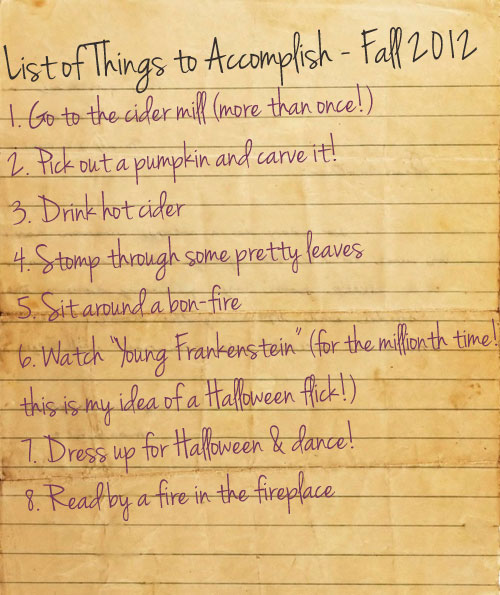 List of Things to Accomplish - Fall 2012
1. Go to the cider mill (more than once!)
2. Pick out a pumpkin and carve it!
3. Drink hot cider
4. Stomp through some pretty leaves
5. Sit around a bon-fire
6. Watch "Young Frankenstein" (for the millionth time!
this is my idea of a Halloween flick!)
7. Dress up for Halloween & dance!
8. Read by a fire in the fireplace